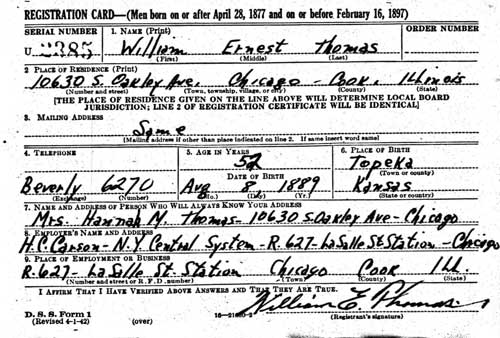 REGISTRATION CARD—(Men born on or after April 28, 1877 and on or before February 16, 1897)
SERIAL NUMBER 1. NAME (Print) ORDER NUMBER
U 2385 William Ernest Thomas
(First) (Middle) (Last)
2. PLACE OF RESIDENCE (Print)
10630 S. Oakley Ave. Chicago - Cook. Illinois
(Number and street) (Town, township, village, or city) (County) (State)
[THE PLACE OF RESIDENCE GIVEN ON THE LINE ABOVE WILL DETERMINE LOCAL BOARD
JURISDICTION; LINE 2 OF REGISTRATION CERTIFICATE WILL BE IDENTICAL]
3. MAILING ADDRESS
Same
(Mailing address if other than place indicated on line 2. If same insert word same)
4. TELEPHONE 5. AGE IN YEARS 6. PLACE OF BIRTH
52 Topeka
DATE OF BIRTH (Town or county)
Beverly 6270 Aug 8, 1889 Kansas
(Exchange) (Number) (Mo.) (Day) (Yr.) (State or country)
7. NAME AND ADDRESS OF PERSON WHO WILL ALWAYS KNOW YOUR ADDRESS
Mrs. Hannah M. Thomas - 10630 S. Oakley Ave - Chicago
8. EMPLOYER'S NAME AND ADDRESS
H.C. Carson - N.Y. Central System - R. 627 - La Salle St. Station - Chicago
9. PLACE OF EMPLOYMENT OR BUSINESS
R. 627 - La Salle St. Station Chicago Cook Ill.
(Number and street or R. F. D. number) (Town) (County) (State)
I AFFIRM THAT I HAVE VERIFIED ABOVE ANSWERS AND THAT THEY ARE TRUE.
William E. Thomas
D. S. S. Form 1
(Revised 4-1-42) (over) (Registrant's signature)